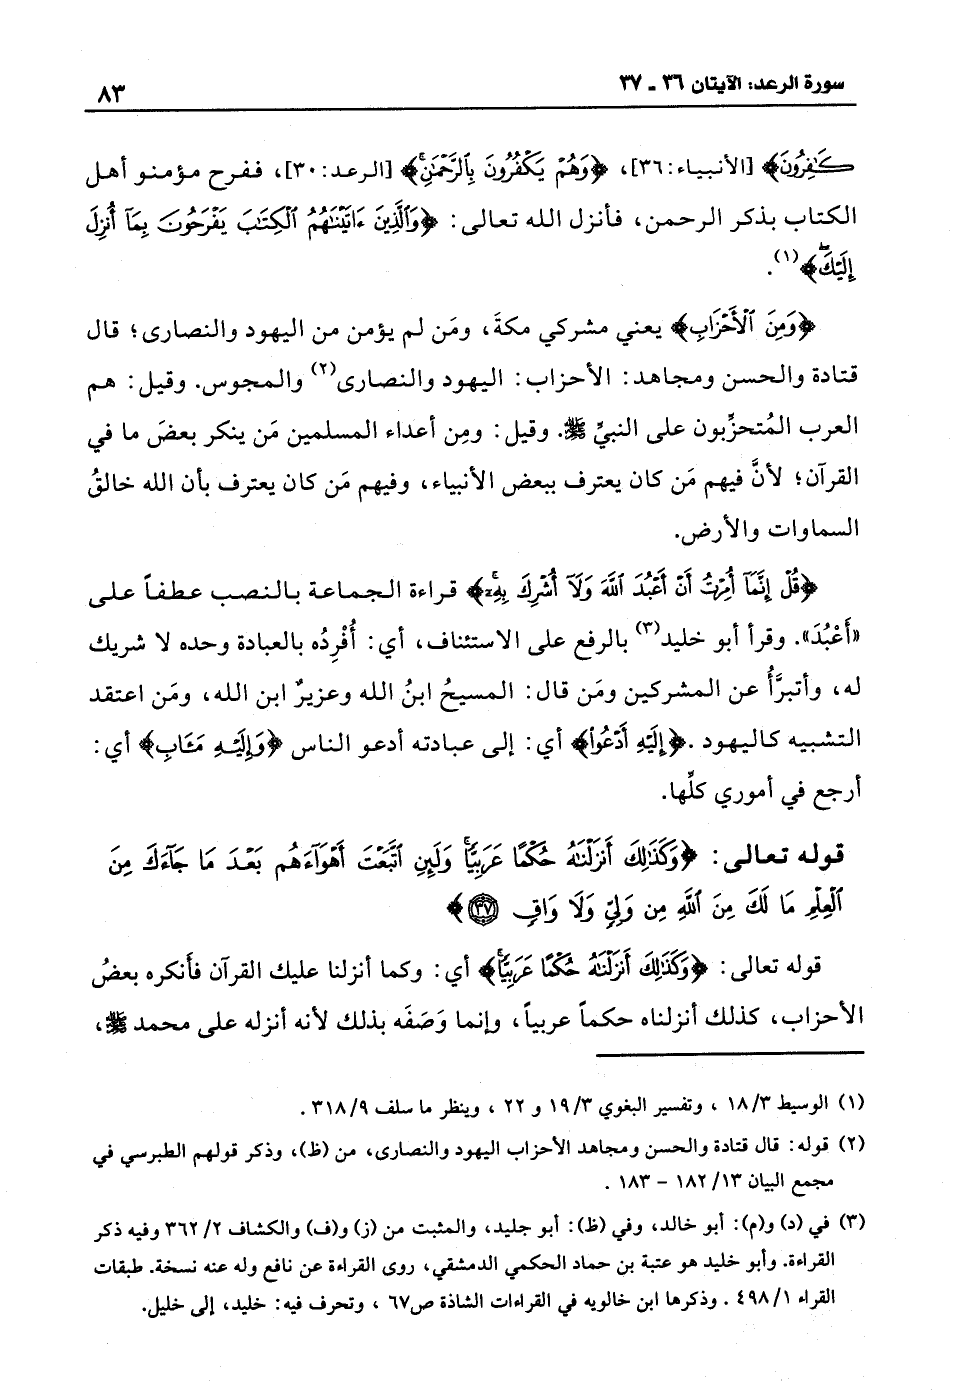 سورة الرعد: الآيتان ٣٦ ـ ٣٧
٨٣
كَٰفِرُونَ﴾ [الأنبياء:٣٦]، ﴿وَهُمْ يَكْفُرُونَ بِالرَّحْمَٰنِۚ﴾ [الرعد:٣٠]، ففرح مؤمنو أهل
الكتاب بذكر الرحمن، فأنزل الله تعالى: ﴿وَٱلَّذِينَ ءَاتَيْنَٰهُمُ ٱلْكِتَٰبَ يَفْرَحُونَ بِمَآ أُنزِلَ
إِلَيْكَۖ﴾(١).
﴿وَمِنَ ٱلْأَحْزَابِ﴾ يعني مشركي مكةَ، ومَن لم يؤمن من اليهود والنصارى؛ قال
قتادة والحسن ومجاهد: الأحزاب: اليهود والنصارى(٢) والمجوس. وقيل: هم
العرب المُتحزِّبون على النبيِّ ﷺ. وقيل: ومِن أعداء المسلمين مَن ينكر بعضَ ما في
القرآن؛ لأنَّ فيهم مَن كان يعترف ببعض الأنبياء، وفيهم مَن كان يعترف بأن الله خالقُ
السماوات والأرض.
﴿قُلْ إِنَّمَآ أُمِرْتُ أَنْ أَعْبُدَ ٱللَّهَ وَلَآ أُشْرِكَ بِهِۦٓۚ﴾ قراءة الجماعة بالنصب عطفاً على
«أَعْبُدَ». وقرأ أبو خليد(٣) بالرفع على الاستئناف، أي: أُفْرِدُه بالعبادة وحده لا شريك
له، وأتبرَّأُ عن المشركين ومَن قال: المسيحُ ابنُ الله وعزيرٌ ابن الله، ومَن اعتقد
التشبيه كاليهود .﴿إِلَيْهِ أَدْعُواْ﴾ أي: إلى عبادته أدعو الناس ﴿وَإِلَيْهِ مَـَٔابِ﴾ أي:
أرجع في أموري كلِّها.
قوله تعالى: ﴿وَكَذَٰلِكَ أَنزَلْنَٰهُ حُكْمًا عَرَبِيًّاۚ وَلَئِنِ ٱتَّبَعْتَ أَهْوَآءَهُم بَعْدَ مَا جَآءَكَ مِنَ
ٱلْعِلْمِ مَا لَكَ مِنَ ٱللَّهِ مِن وَلِيٍّ وَلَا وَاقٍ ۝٣٧﴾
قوله تعالى: ﴿وَكَذَٰلِكَ أَنزَلْنَٰهُ حُكْمًا عَرَبِيًّاۚ﴾ أي: وكما أنزلنا عليك القرآن فأنكره بعضُ
الأحزاب، كذلك أنزلناه حكماً عربياً، وإنما وَصَفَه بذلك لأنه أنزله على محمد ﷺ،
(١) الوسيط ١٨/٣ ، وتفسير البغوي ١٩/٣ و ٢٢ ، وينظر ما سلف ٣١٨/٩ .
(٢) قوله: قال قتادة والحسن ومجاهد الأحزاب اليهود والنصارى، من (ظ)، وذكر قولهم الطبرسي في
مجمع البيان ١٣/ ١٨٢ - ١٨٣ .
(٣) في (د) و(م): أبو خالد، وفي (ظ): أبو جليد، والمثبت من (ز) و(ف) والكشاف ٣٦٢/٢ وفيه ذكر
القراءة. وأبو خليد هو عتبة بن حماد الحكمي الدمشقي، روى القراءة عن نافع وله عنه نسخة. طبقات
القراء ٤٩٨/١ . وذكرها ابن خالويه في القراءات الشاذة ص٦٧ ، وتحرف فيه: خليد، إلى خليل.